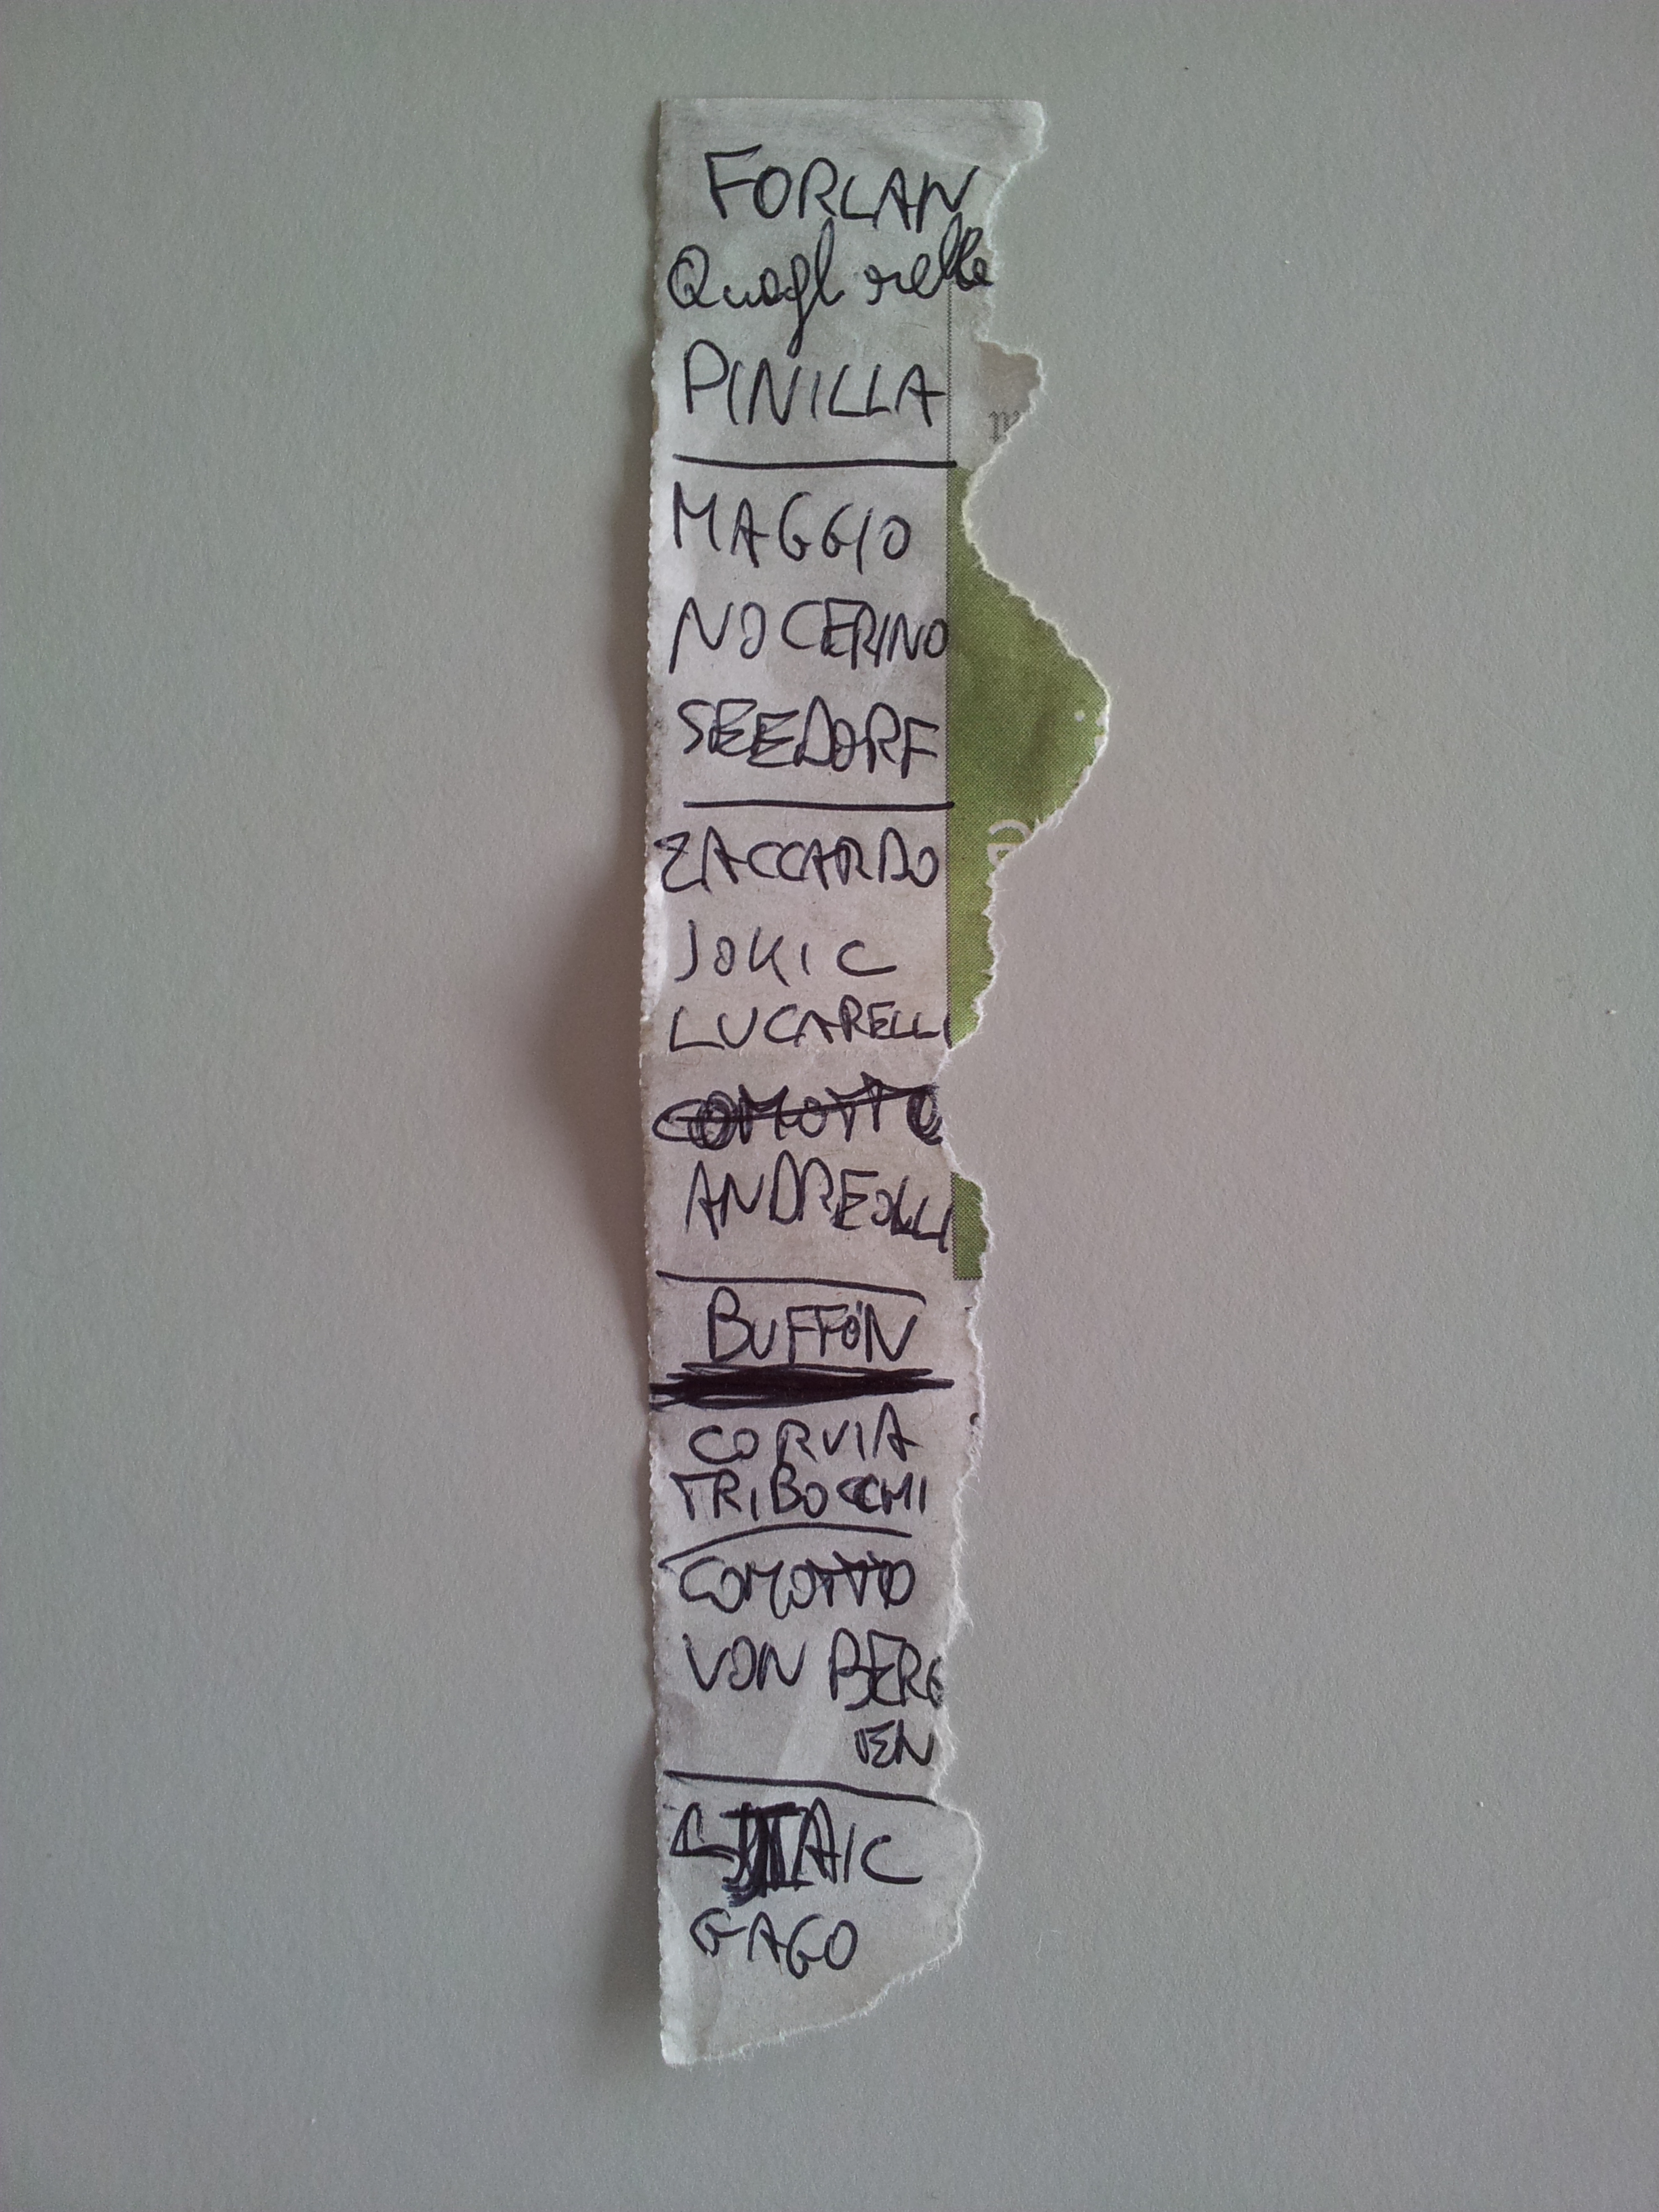 FORLAN
Quagl relle
PINILLA
MAGGIO
NOCERINO
SEEDORF
ZACCARDO
JOKIC
LUCARELLI
COMOTTO
ANDREOLLI
BUFFON
CORVIA
TRIBOCCHI
COMOTTO
VON BERG
EN
GAGO